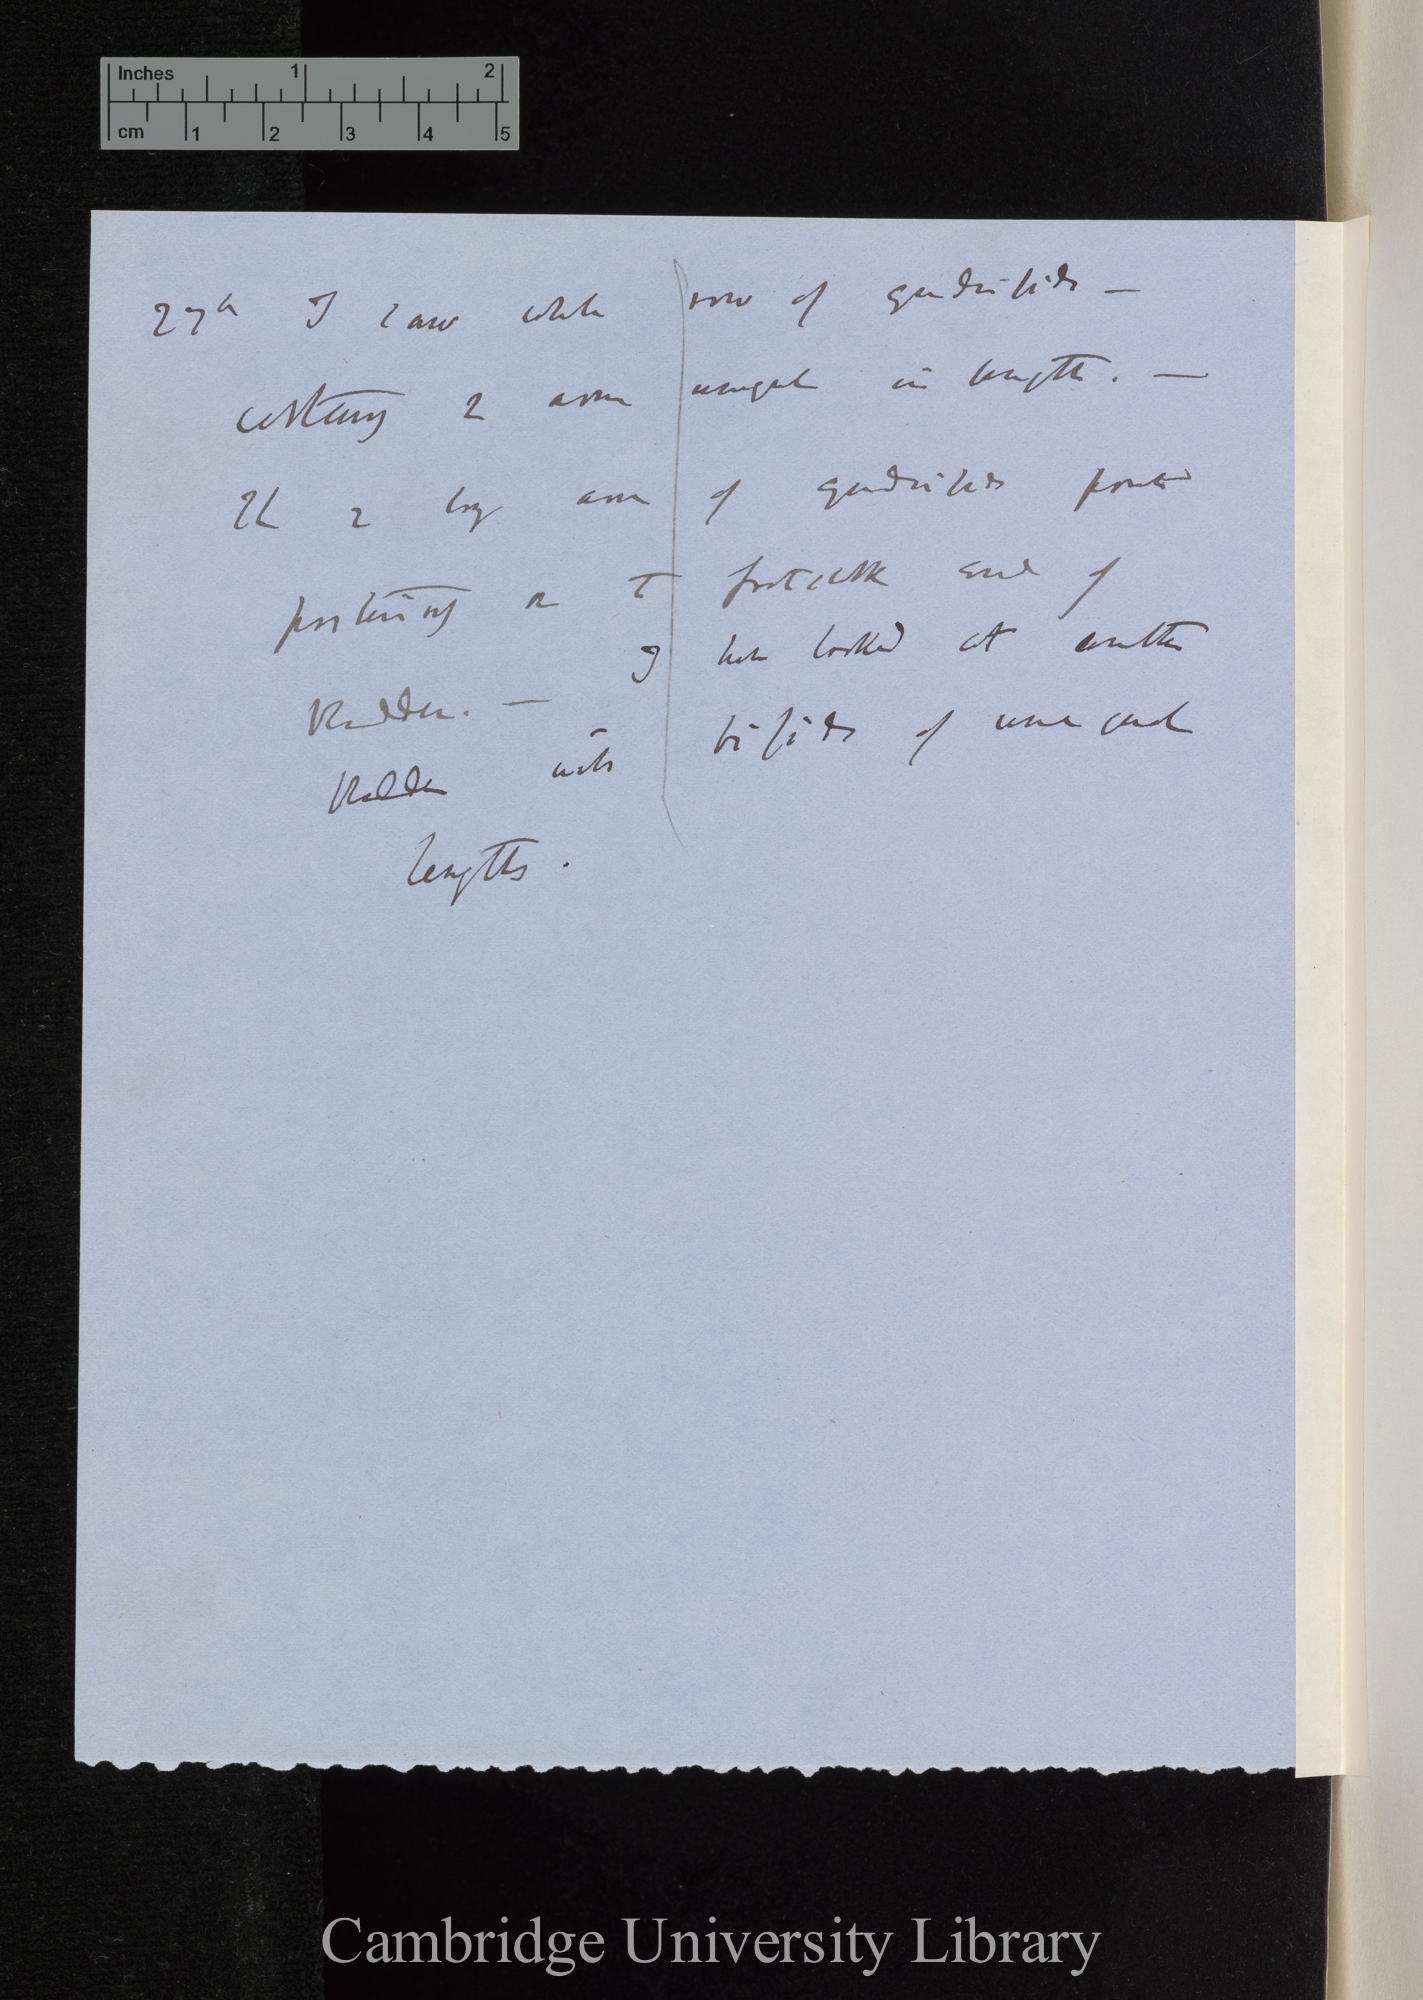 Inches 1 2
cm 1 2 3 4 5
27th I saw whole row of quadrifids —
certainly 2 arms unequal in length. —
The 2 long arms of quadrifids pointed
posteriorly or to footstalk end of
Bladder. — I have looked at another
Bladder with bifids of unequal
lengths.
Cambridge University Library